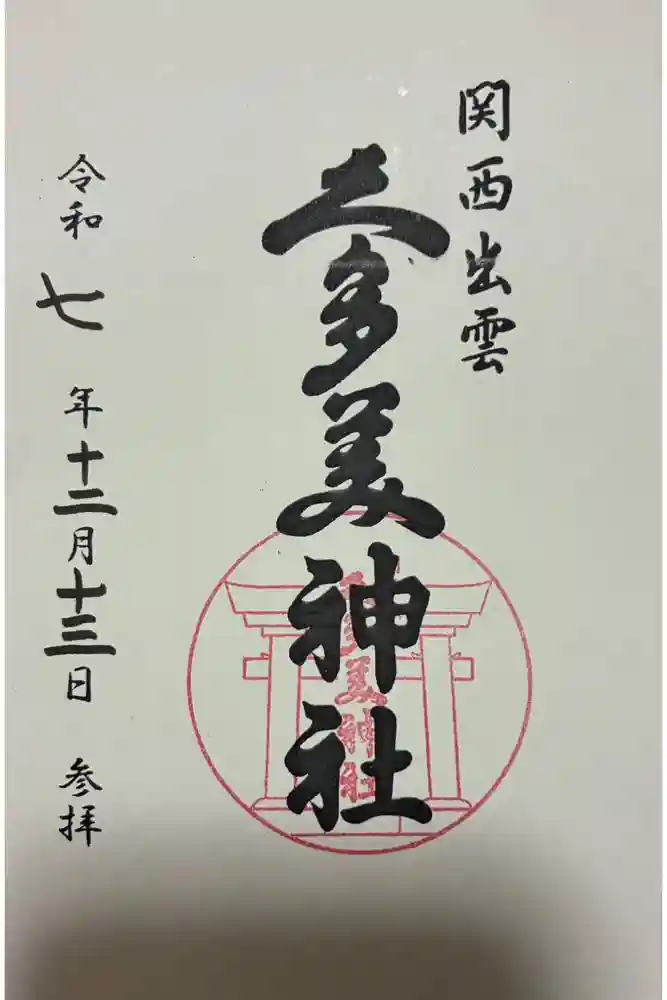 関西出雲
久多美神社
久多美神社
令和七年十二月十三日 参拝